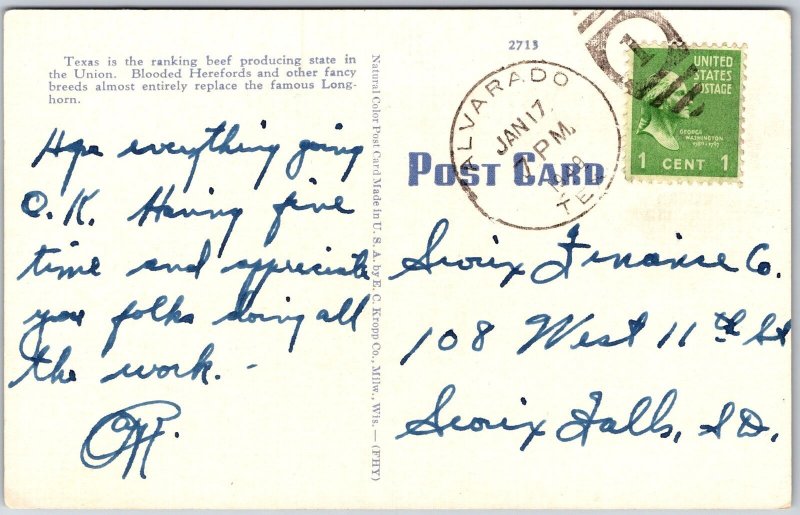 2713
Texas is the ranking beef producing state in
the Union. Blooded Herefords and other fancy
breeds almost entirely replace the famous Long-
horn.
Hope everything going
O.K. Having fine
time and appreciate
you folks doing all
the work. -
Natural Color Post Card Made in U. S. A. by E. C. Kropp Co., Milw., Wis. — (FHY)
POST CARD
ALVARADO
JAN 17
7 PM
TEX
UNITED
STATES
POSTAGE
GEORGE
WASHINGTON
1 CENT 1
Sioux Finance Co.
108 West 11th St
Sioux Falls, SD.